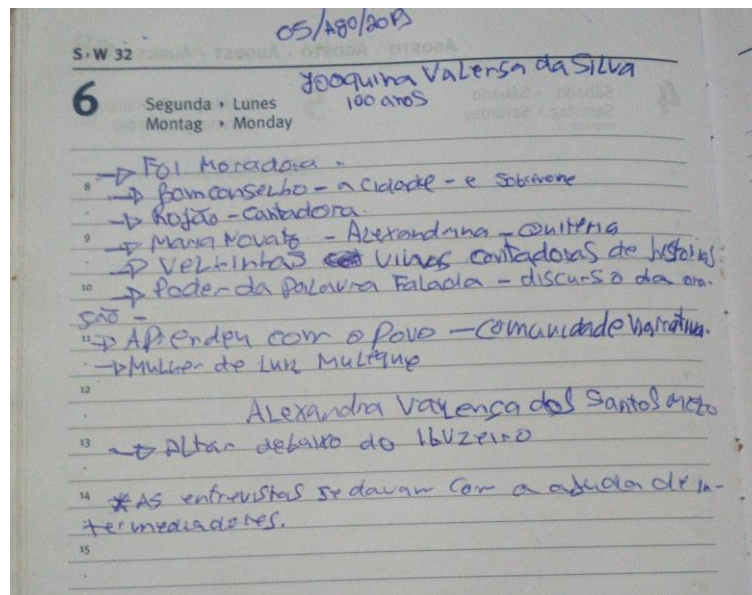 05/Ago/2013
S・W 32
Jooquina Valensa da Silva
6 Segunda ‣ Lunes
100 anos
Montag ‣ Monday
→ Foi Moradora -
8 → Bom conselho - a cidade - e
→ Rojão - Cantadora.
9 → Maria Novato - Alexandrina - Quitéria
→ Velhinhas vivas contadoras de histórias.
10 → Poder da Palavra Falada - discurso da ora-
ção -
11 → Aprendeu com o Povo - Comunidade Narrativa.
→ Mulher de Luiz Muleque
12
Alexandra Valença dos Santos
13 → Altar debaixo do Ibuzeiro
14 * As entrevistas se davam com a ajuda de in-
termediadores.
15